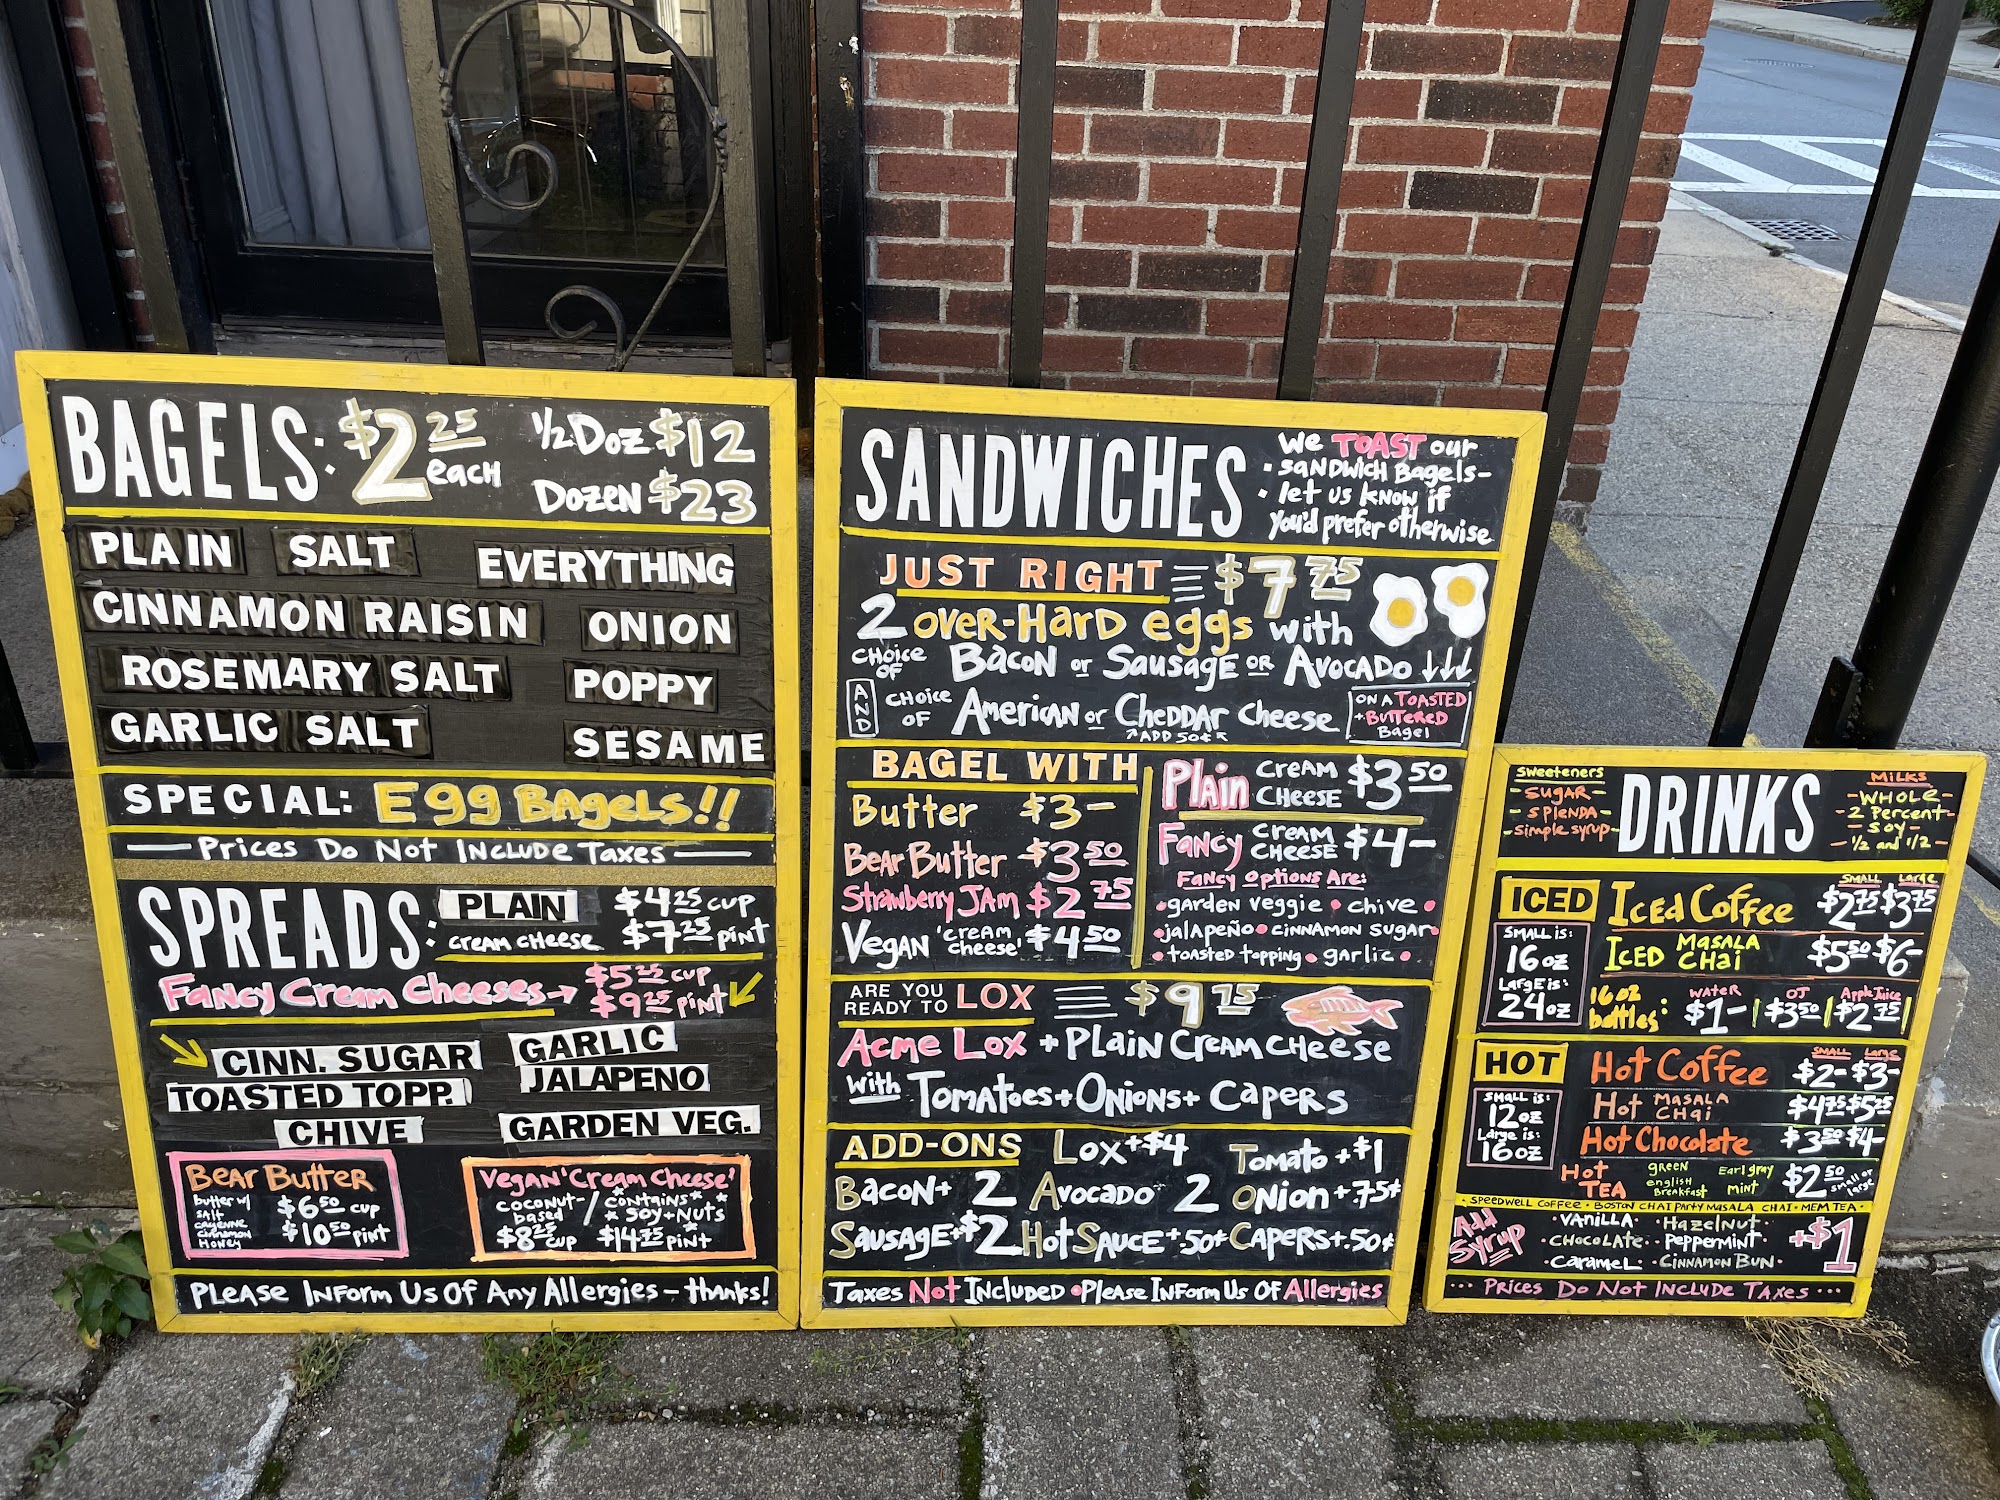 BAGELS: $2.25 each
1/2 Doz $12
Dozen $23
PLAIN SALT EVERYTHING
CINNAMON RAISIN ONION
ROSEMARY SALT POPPY
GARLIC SALT SESAME
SPECIAL: Egg BAgels!!
Prices Do Not Include Taxes
SPREADS: PLAIN cream cheese $4.25 cup
$7.25 pint
Fancy Cream Cheeses → $5.25 cup
$9.25 pint
CINN. SUGAR GARLIC
TOASTED TOPP. JALAPENO
CHIVE GARDEN VEG.
Bear Butter
butter w/
salt
cayenne
cinnamon
Honey
$6.50 cup
$10.50 pint
Vegan 'Cream Cheese'
coconut-based / *contains* *soy+nuts*
$8.25 cup $14.75 pint
Please Inform Us Of Any Allergies – thanks!
SANDWICHES
We TOAST our
• SANDWICH Bagels-
• let us know if
you'd prefer otherwise
JUST RIGHT $7.75
2 over-Hard eggs with
CHOICE OF Bacon or Sausage or Avocado ↓↓↓
AND CHOICE OF American or Cheddar cheese
↑ADD 50¢↖
ON A TOASTED
+ BUTTERED
Bagel
BAGEL WITH
Butter $3-
Bear Butter $3.50
Strawberry JAM $2.75
Vegan 'cream cheese' $4.50
Plain CREAM CHEESE $3.50
Fancy CREAM CHEESE $4-
Fancy Options Are:
• garden veggie • chive •
• jalapeño • cinnamon sugar •
• toasted topping • garlic •
ARE YOU
READY TO LOX $9.75
Acme Lox + Plain Cream cheese
with Tomatoes + Onions + Capers
ADD-ONS Lox +$4 Tomato +$1
Bacon + 2 Avocado 2 Onion +75¢
Sausage +$2 Hot Sauce +.50¢ Capers +.50¢
Taxes Not Included • Please Inform Us Of Allergies
Sweeteners
- SUGAR -
- SPLENDA -
- simple syrup -
DRINKS
MILKS
- WHOLE -
- 2 Percent -
- SOY -
- 1/2 and 1/2 -
SMALL Large
ICED Iced Coffee $2.75 $3.75
SMALL IS:
16oz
Large is:
24oz
Iced MASALA CHai $5.50 $6-
16 oz bottles: WATER $1- OJ $3.50 Apple Juice $2.75
SMALL Large
HOT Hot Coffee $2- $3-
SMALL is:
12oz
Large is:
16oz
Hot MASALA CHai $4.75 $5.25
Hot Chocolate $3.50 $4-
Hot TEA green Earl gray
english Breakfast mint
$2.50 small or large
• SPEEDWELL COFFEE • BOSTON CHAI PARTY MASALA CHAI • MEM TEA •
Add Syrup
• VANILLA • • Hazelnut •
• CHOCOLATE • • PEPPERMINT •
• Caramel • • CINNAMON BUN •
+$1
••• Prices Do Not Include Taxes •••